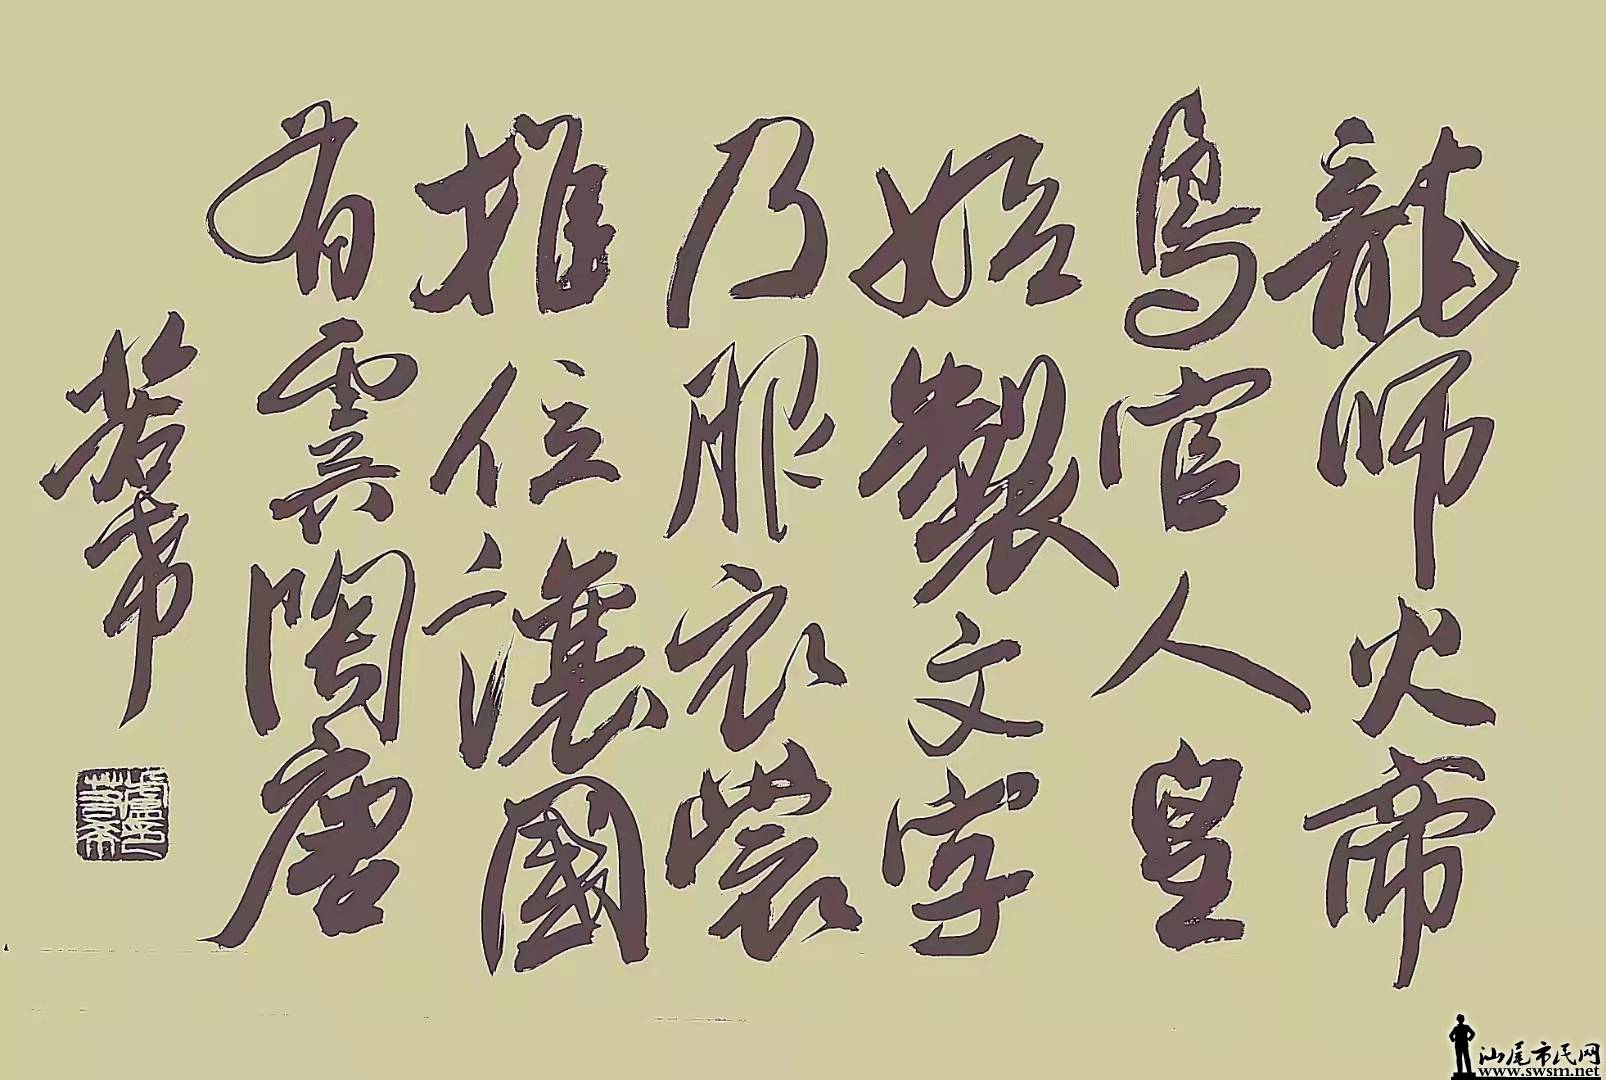 龍師火帝
鳥官人皇
始製文字
乃服衣裳
推位讓國
有虞陶唐
若希
汕尾市民网
www.swsm.net